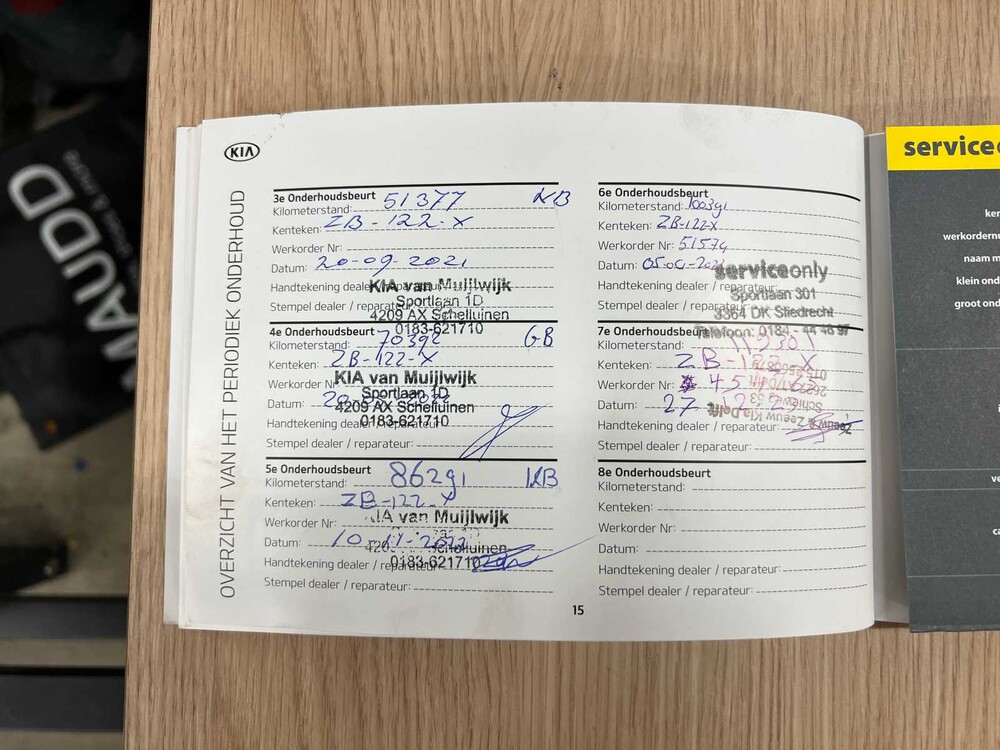 KIA
OVERZICHT VAN HET PERIODIEK ONDERHOUD
3e Onderhoudsbeurt
Kilometerstand: 51377 KB
Kenteken: ZB-122-X
Werkorder Nr:
Datum: 20-09-2021
Handtekening dealer / reparateur:
Stempel dealer / reparateur:
KIA van Muijlwijk
Sportlaan 1D
4209 AX Schelluinen
0183-621710
4e Onderhoudsbeurt
Kilometerstand: 70392 GB
Kenteken: ZB-122-X
Werkorder Nr:
Datum:
KIA van Muijlwijk
Sportlaan 1D
4209 AX Schelluinen
0183-621710
Handtekening dealer / reparateur:
Stempel dealer / reparateur:
5e Onderhoudsbeurt
Kilometerstand: 86291 KB
Kenteken: ZB-122-X
Werkorder Nr:
KIA van Muijlwijk
Datum: 10-11-2022
Schelluinen
0183-621710
Handtekening dealer / reparateur:
Stempel dealer / reparateur:
6e Onderhoudsbeurt
Kilometerstand: 100391
Kenteken: ZB-122-X
Werkorder Nr: 51574
Datum:
Handtekening dealer / reparateur:
Stempel dealer / reparateur:
serviceonly
Sportlaan 301
3364 DK Sliedrecht
Telefoon: 0184 - 44 48 97
7e Onderhoudsbeurt
Kilometerstand:
Kenteken: ZB-122-X
Werkorder Nr:
Datum: 27
Zeeuw & Zeeuw Kia Delft
Handtekening dealer / reparateur:
Stempel dealer / reparateur:
8e Onderhoudsbeurt
Kilometerstand:
Kenteken:
Werkorder Nr:
Datum:
Handtekening dealer / reparateur:
Stempel dealer / reparateur:
15
service
ken
werkordernu
naam m
klein ond
groot ond
ve
ca